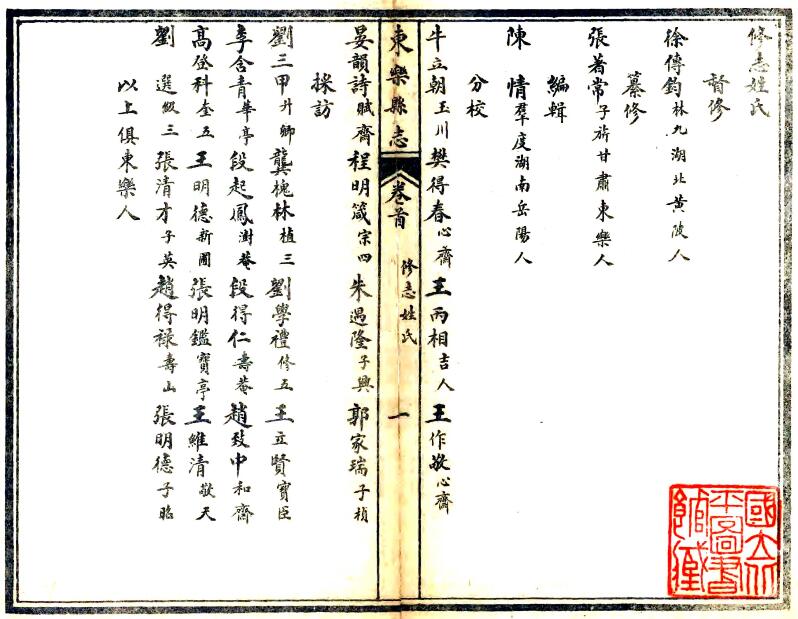 修志姓氏
督修
徐傳鈞林九湖北黃陂人
纂修
張著常子旂甘肅東樂人
編輯
陳情羣度湖南岳陽人
分校
牛立朝玉川樊得春心齋王丙相吉人王作敬心齋
東樂縣志 卷首 修志姓氏 一
晏韻詩賦齋程明箴宗四朱遇隆子興郭家瑞子楨
採訪
劉三甲升卿龔槐林植三劉學禮修五王立賢寶臣
李含青華亭段起鳳澍菴段得仁壽菴趙致中和齋
高登科奎五王明德新圃張明鑑寶亭王維清敬天
劉選級三張清才子英趙得祿壽山張明德子昭
以上俱東樂人
國立北平圖書館藏